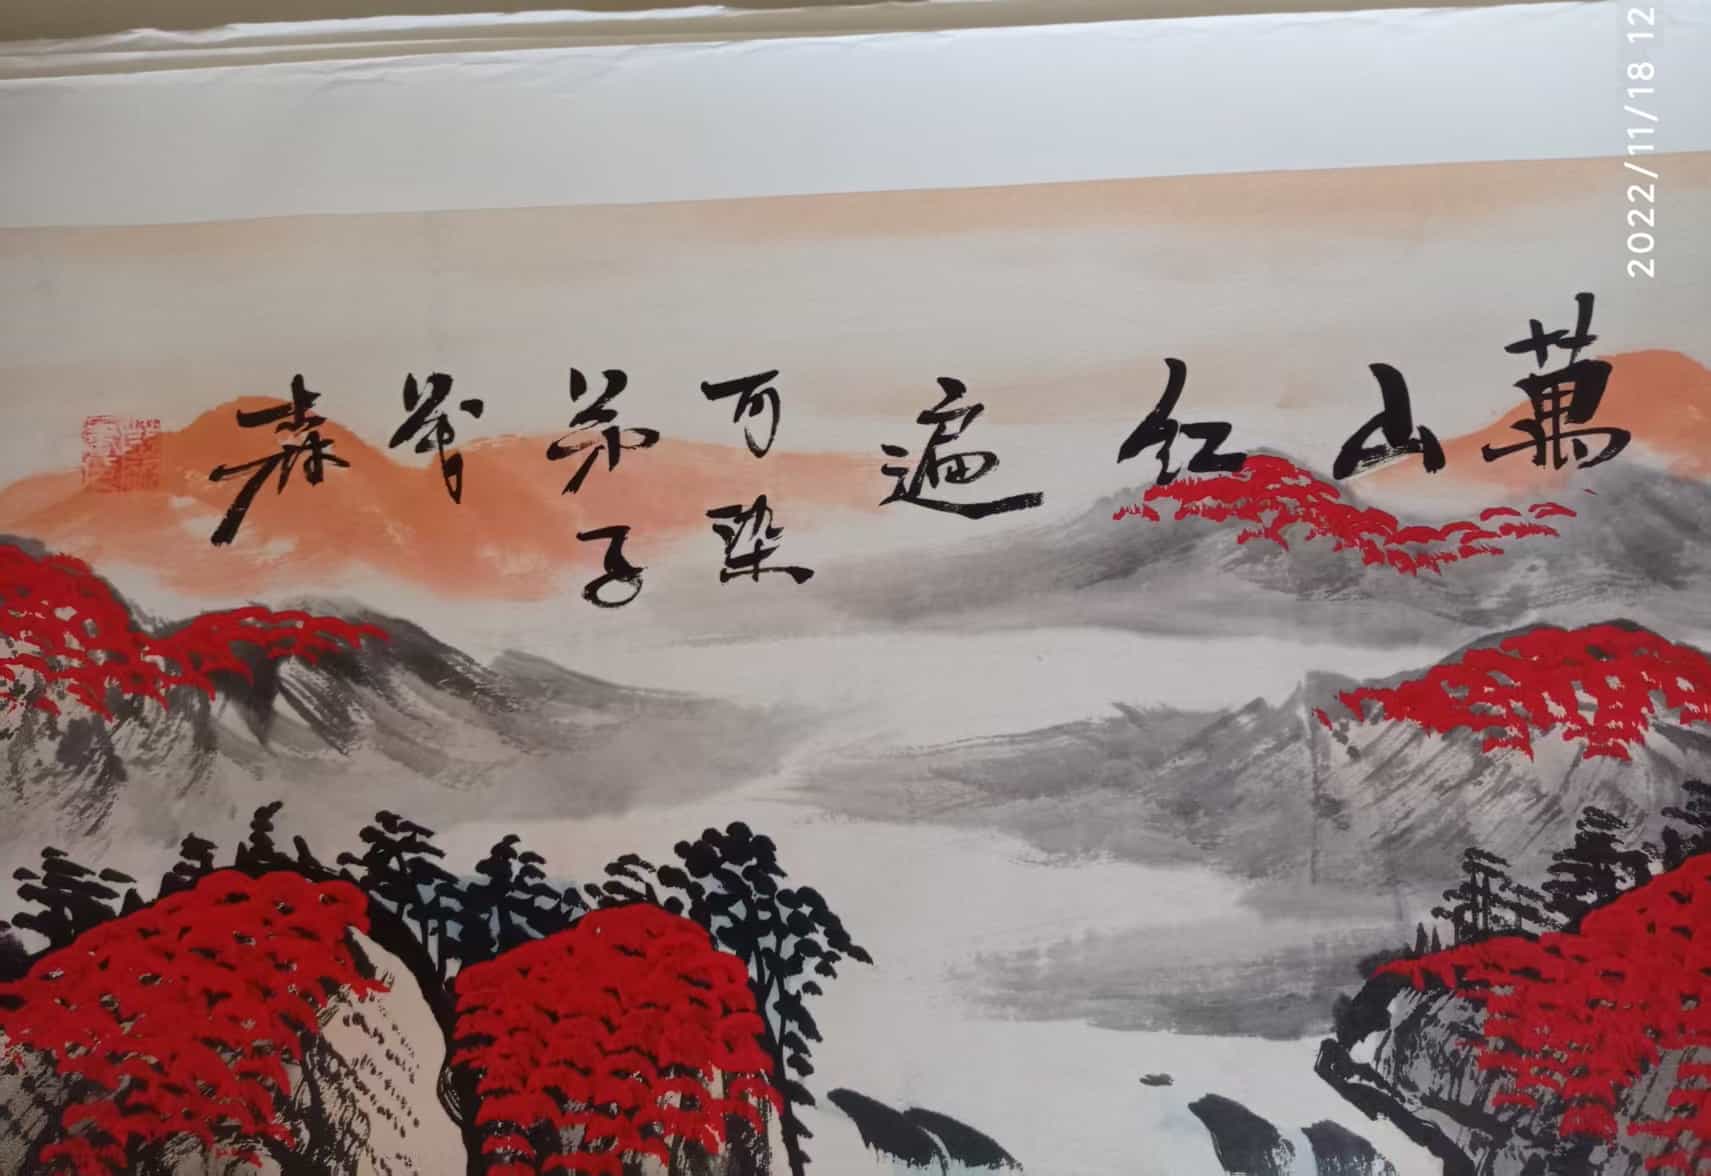 萬山红遍
可染
弟子
森
2022/11/18 12